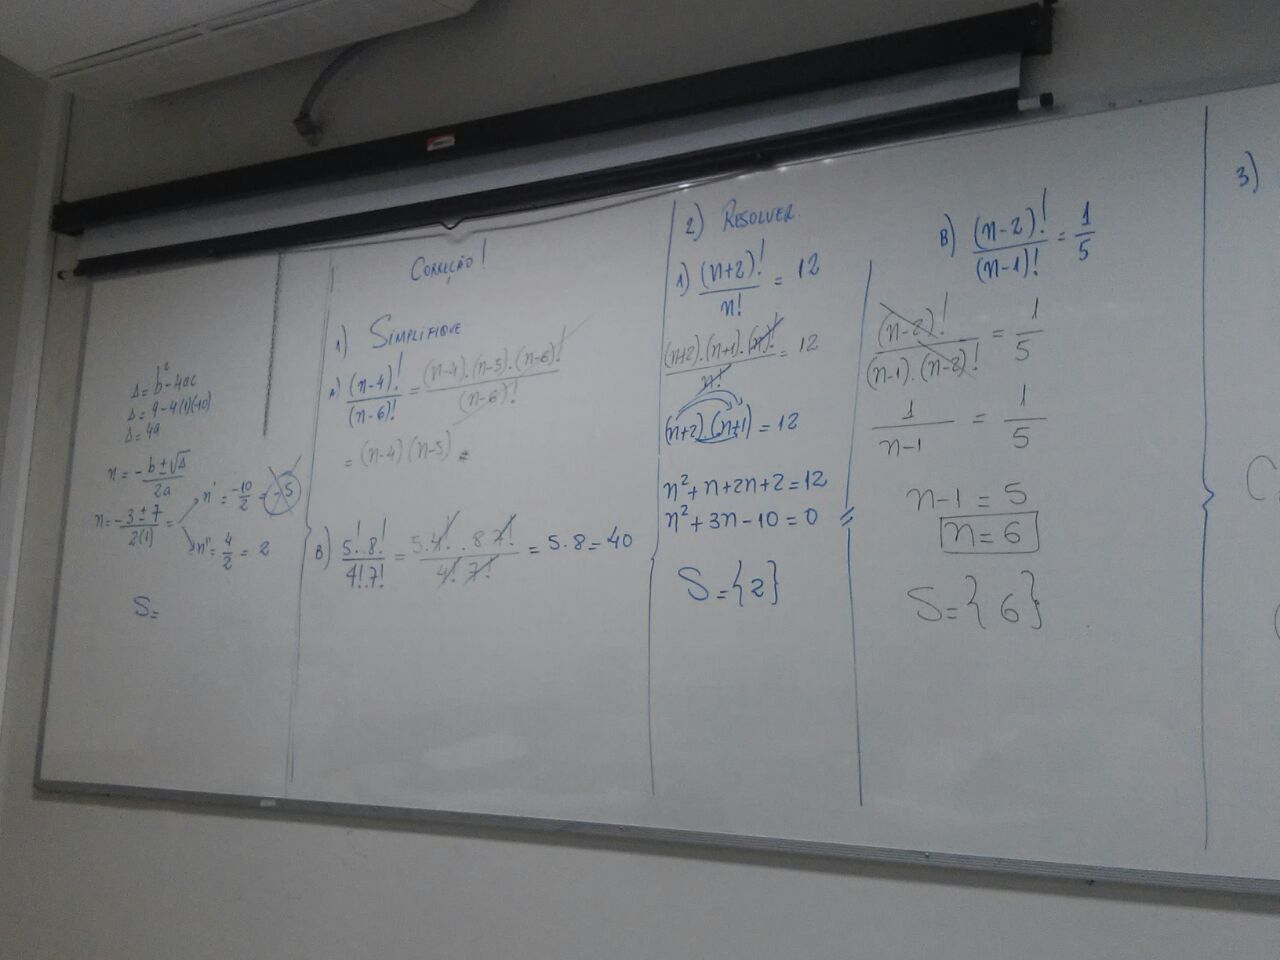 Δ = b² - 4ac
Δ = 9 - 4(1)(-10)
Δ = 49
n = -b ± √Δ / 2a
n = -3 ± 7 / 2(1) =
n' = -10/2 = -5
n'' = 4/2 = 2
S =
CORREÇÃO!
1) SIMPLIFIQUE
A) (n-4)! / (n-6)! = (n-4).(n-5).(n-6)! / (n-6)!
= (n-4)(n-5)
B) 5!.8! / 4!.7! = 5.4!.8.7! / 4!.7! = 5.8 = 40
2) RESOLVER
A) (n+2)! / n! = 12
(n+2).(n+1).(n)! / n! = 12
(n+2).(n+1) = 12
n² + n + 2n + 2 = 12
n² + 3n - 10 = 0
S = {2}
B) (n-2)! / (n-1)! = 1/5
(n-2)! / (n-1).(n-2)! = 1/5
1 / n-1 = 1/5
n-1 = 5
n = 6
S = {6}
3)